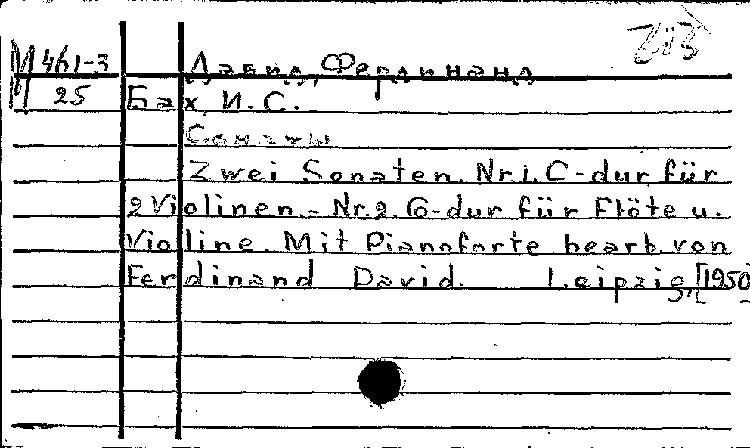 М 461-3
25
Давид, Фердинанд
Бах, И.С.
Сонаты
Zwei Sonaten. Nr.1. C-dur für
2 Violinen. - Nr.2. G-dur für Flöte u.
Violine. Mit Pianoforte bearb. von
Ferdinand David. Leipzig, [1950]